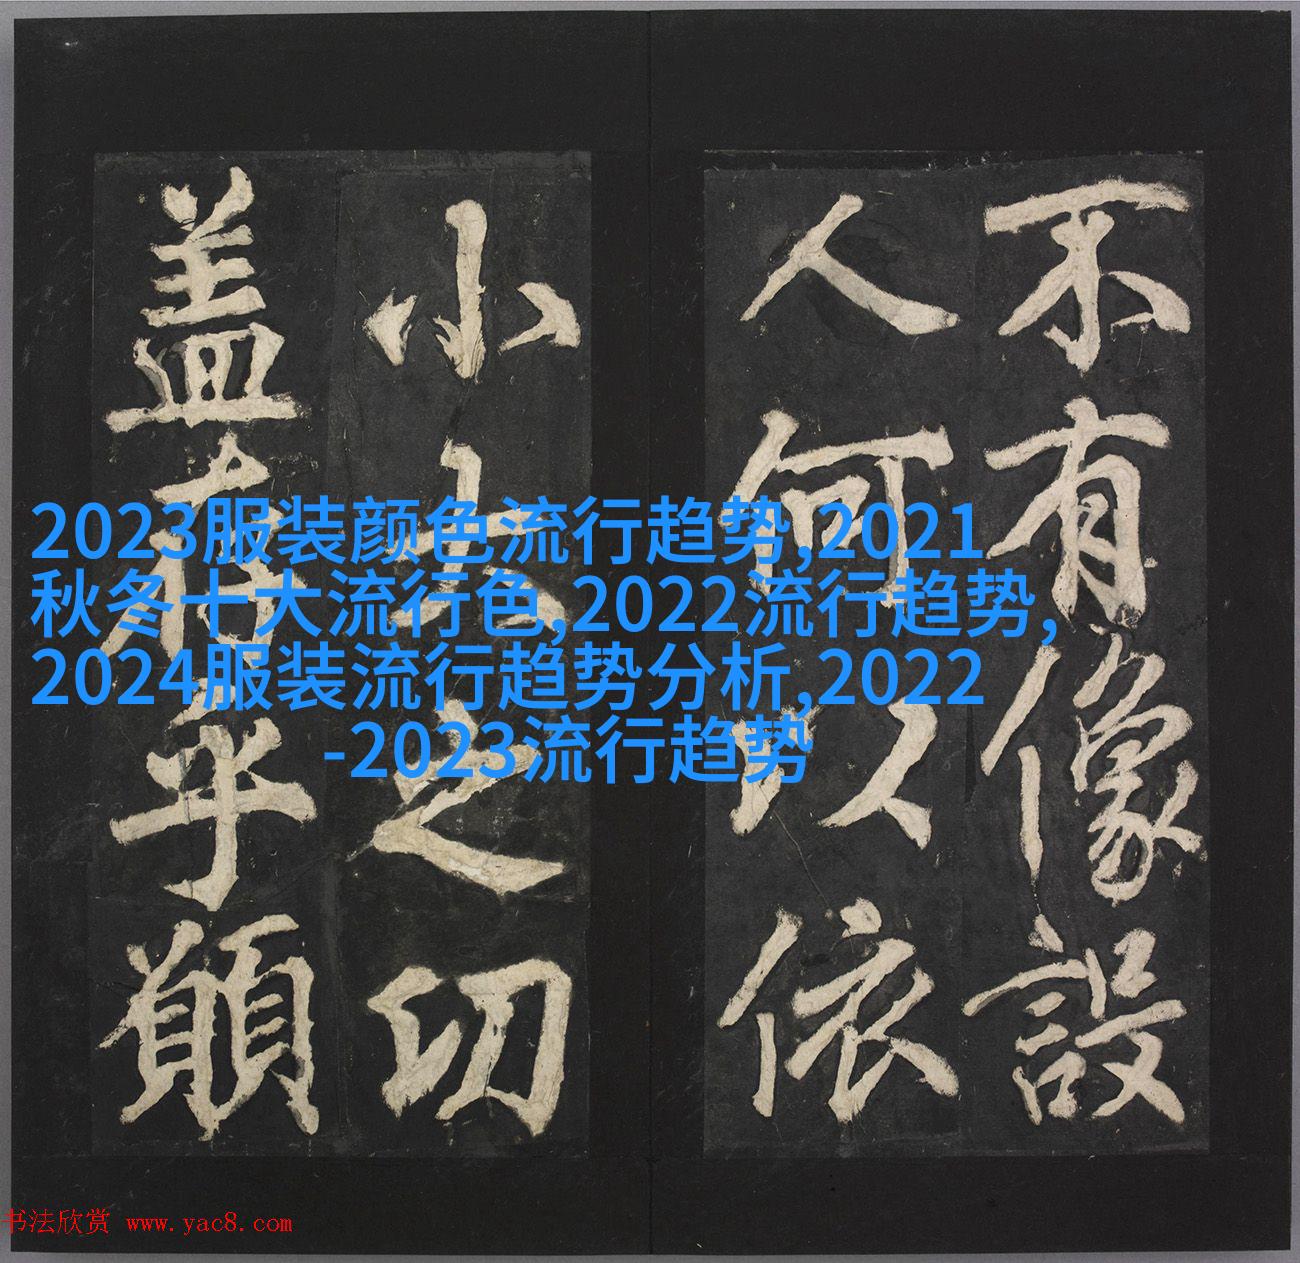 不有像設
人何以依
小大之切
盖存乎願
2023服装颜色流行趋势,2021
秋冬十大流行色,2022流行趋势,
2024服装流行趋势分析,2022
-2023流行趋势
书法欣赏 www.yac8.com